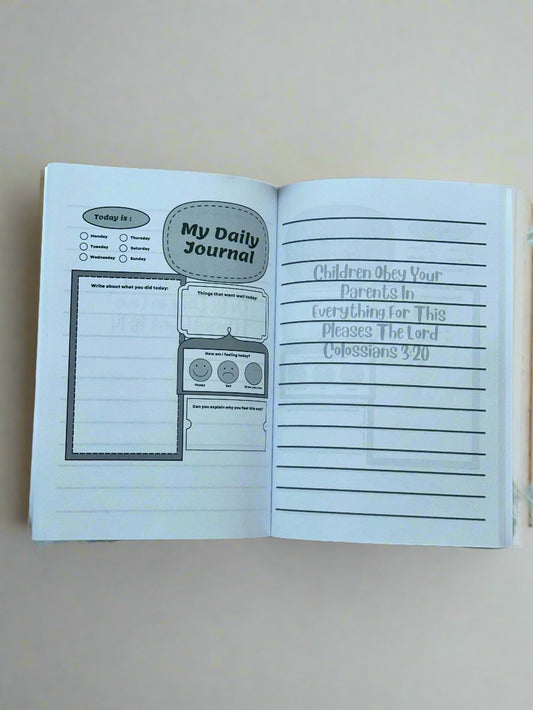 Today is :
Monday
Thursday
Tuesday
Saturday
Wednesday
Sunday
My Daily
Journal
Write about what you did today:
Things that went well today:
How am I feeling today?
Happy
Sad
Can you explain why you feel this way?
Children Obey Your
Parents In
Everything For This
Pleases The Lord
Colossians 3:20